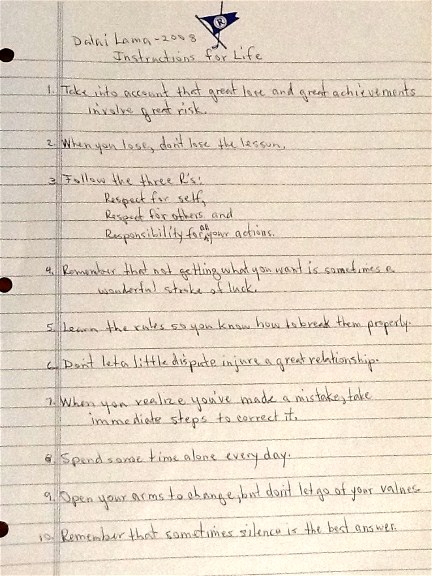 R
Dalai Lama - 2008
Instructions for Life
1. Take into account that great love and great achievements
involve great risk.
2. When you lose, don't lose the lesson.
3. Follow the three R's:
Respect for self,
Respect for others and
Responsibility for all your actions.
4. Remember that not getting what you want is sometimes a
wonderful stroke of luck.
5. Learn the rules so you know how to break them properly.
6. Don't let a little dispute injure a great relationship.
7. When you realize you've made a mistake, take
immediate steps to correct it.
8. Spend some time alone every day.
9. Open your arms to change, but don't let go of your values
10. Remember that sometimes silence is the best answer.